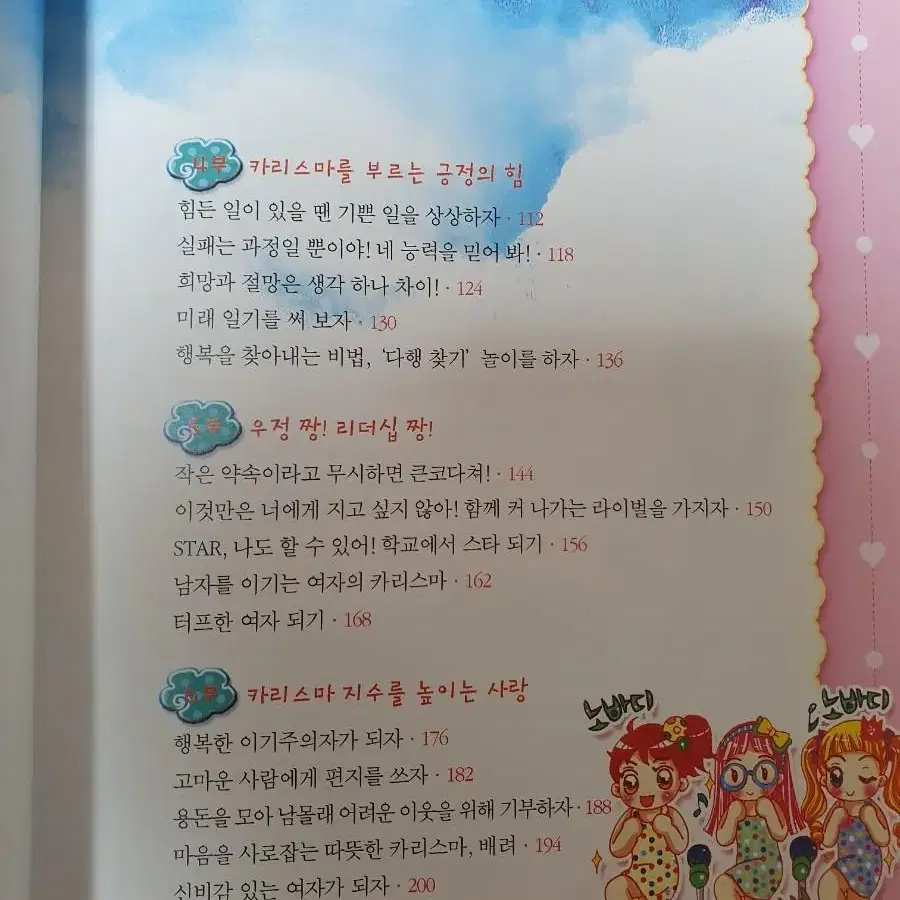 4부 카리스마를 부르는 긍정의 힘
힘든 일이 있을 땐 기쁜 일을 상상하자 · 112
실패는 과정일 뿐이야! 네 능력을 믿어 봐! · 118
희망과 절망은 생각 하나 차이! · 124
미래 일기를 써 보자 · 130
행복을 찾아내는 비법, ‘다행 찾기’ 놀이를 하자 · 136
5부 우정 짱! 리더십 짱!
작은 약속이라고 무시하면 큰코다쳐! · 144
이것만은 너에게 지고 싶지 않아! 함께 커 나가는 라이벌을 가지자 · 150
STAR, 나도 할 수 있어! 학교에서 스타 되기 · 156
남자를 이기는 여자의 카리스마 · 162
터프한 여자 되기 · 168
6부 카리스마 지수를 높이는 사랑
행복한 이기주의자가 되자 · 176
고마운 사람에게 편지를 쓰자 · 182
용돈을 모아 남몰래 어려운 이웃을 위해 기부하자 · 188
마음을 사로잡는 따뜻한 카리스마, 배려 · 194
신비감 있는 여자가 되자 · 200
노바디
노바디